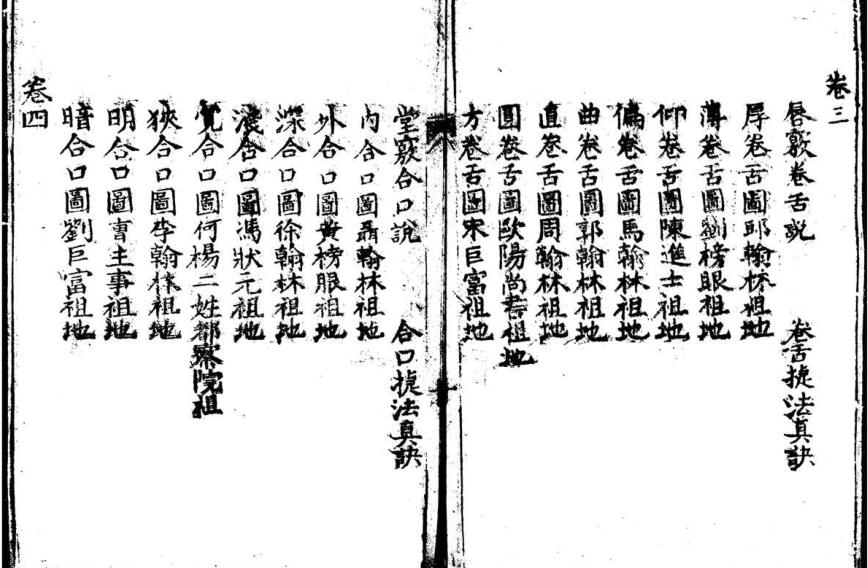 卷三
唇竅卷舌說 卷舌捷法真訣
厚卷舌圖邱翰林祖地
薄卷舌圖劉榜眼祖地
仰卷舌圖陳進士祖地
偏卷舌圖馬翰林祖地
曲卷舌圖郭翰林祖地
直卷舌圖周翰林祖地
圓卷舌圖歐陽尚書祖地
方卷舌圖宋巨富祖地
堂竅合口說 合口捷法真訣
內合口圖聶翰林祖地
外合口圖黃榜眼祖地
深合口圖徐翰林祖地
淺合口圖馮狀元祖地
寬合口圖何楊二姓都察院祖
狹合口圖李翰林祖地
明合口圖曹主事祖地
暗合口圖劉巨富祖地
卷四